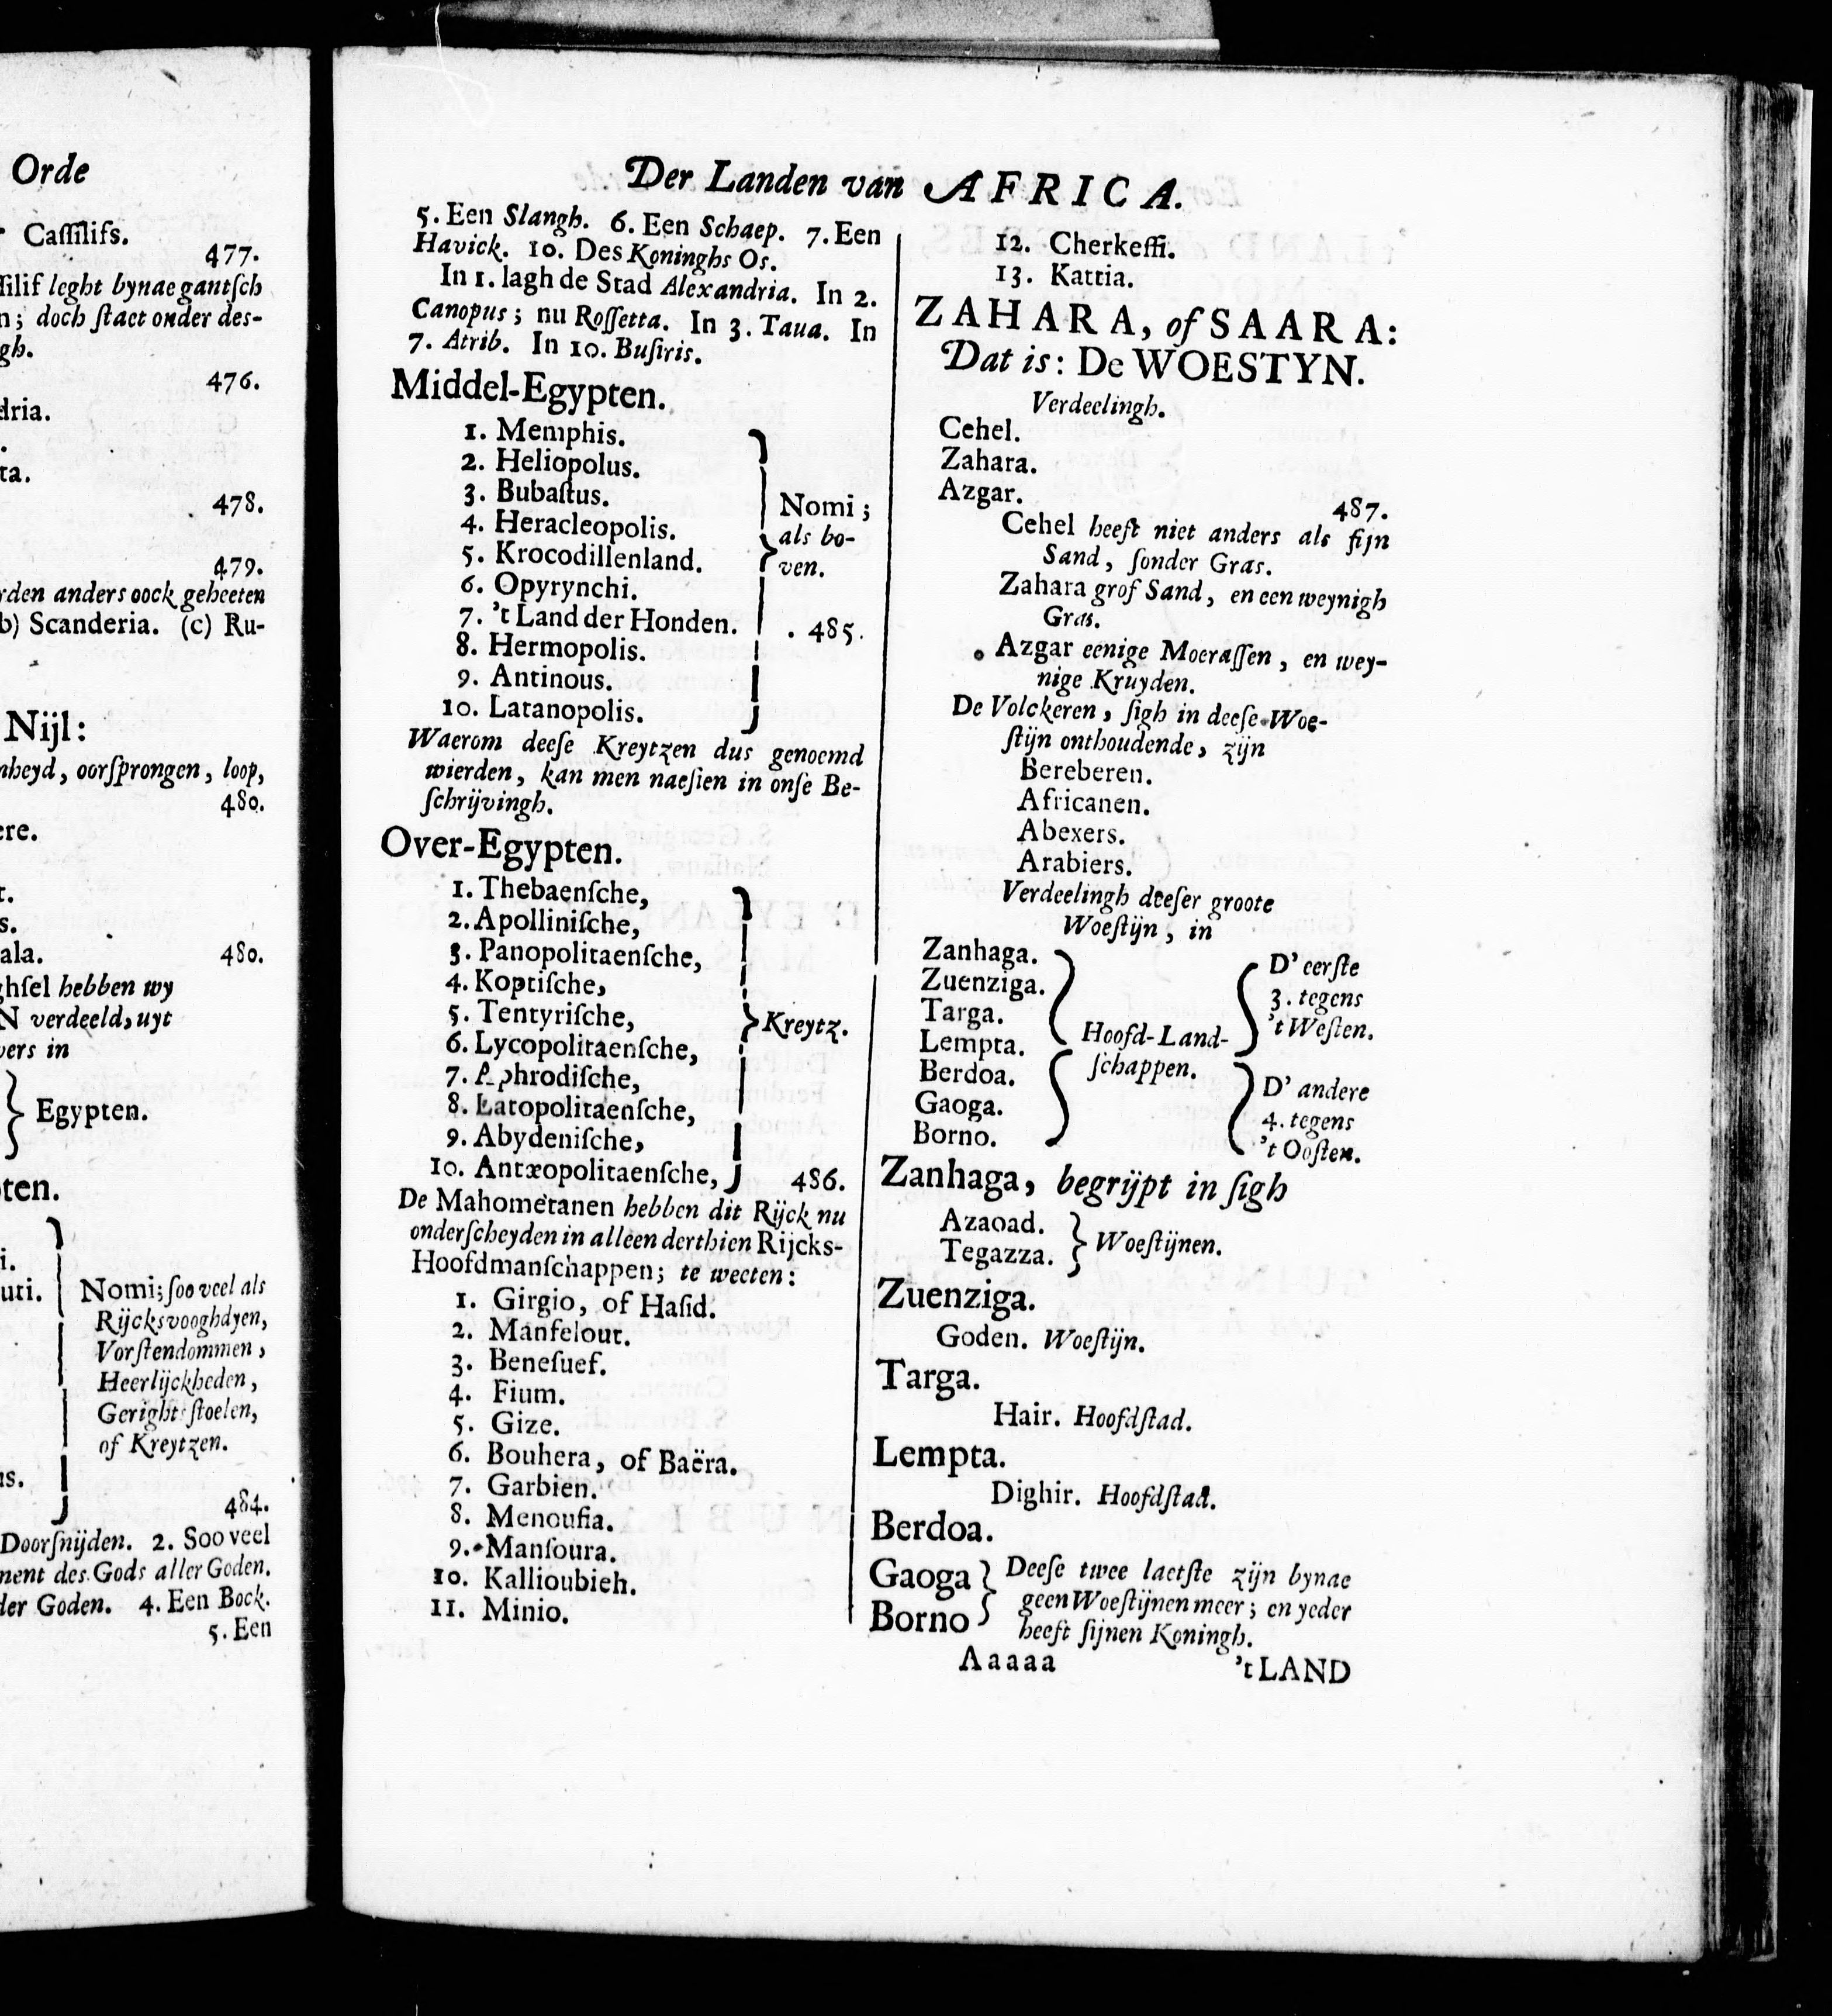 Orde
Cassilifs.
477.
silif leght bynae gantsch
n; doch staet onder des-
gh.
476.
dria.
ta.
478.
479.
rden anders oock geheeten
b) Scanderia. (c) Ru-
Nijl:
nheyd, oorsprongen, loop,
480.
ere.
t.
s.
ala. 480.
ghsel hebben wy
N verdeeld, uyt
vers in
Egypten.
pten.
i.
uti. Nomi; soo veel als
Rijcksvooghdyen,
Vorstendommen,
Heerlijckheden,
Gerightsstoelen,
of Kreytzen.
us.
484.
Doorsnijden. 2. Soo veel
ment des Gods aller Goden.
der Goden. 4. Een Bock.
5. Een
Der Landen van AFRICA.
5. Een Slangh. 6. Een Schaep. 7. Een
Havick. 10. Des Koninghs Os.
In 1. lagh de Stad Alexandria. In 2.
Canopus; nu Rossetta. In 3. Taua. In
7. Atrib. In 10. Busiris.
Middel-Egypten.
1. Memphis.
2. Heliopolus.
3. Bubastus.
4. Heracleopolis.
5. Krocodillenland.
6. Opyrynchi.
7. 't Land der Honden.
8. Hermopolis.
9. Antinous.
10. Latanopolis.
Nomi;
als bo-
ven.
. 485.
Waerom deese Kreytzen dus genoemd
wierden, kan men naesien in onse Be-
schrijvingh.
Over-Egypten.
1. Thebaensche,
2. Apollinische,
3. Panopolitaensche,
4. Koptische,
5. Tentyrische,
6. Lycopolitaensche,
7. Aphrodische,
8. Latopolitaensche,
9. Abydenische,
10. Antæopolitaensche,
Kreytz.
486.
De Mahometanen hebben dit Rijck nu
onderscheyden in alleen derthien Rijcks-
Hoofdmanschappen; te weeten:
1. Girgio, of Hasid.
2. Manfelout.
3. Benesuef.
4. Fium.
5. Gize.
6. Bouhera, of Baëra.
7. Garbien.
8. Menoufia.
9. Mansoura.
10. Kallioubieh.
11. Minio.
12. Cherkeffi.
13. Kattia.
ZAHARA, of SAARA:
Dat is: De WOESTYN.
Verdeelingh.
Cehel.
Zahara.
Azgar. 487.
Cehel heeft niet anders als fijn
Sand, sonder Gras.
Zahara grof Sand, en een weynigh
Gras.
Azgar eenige Moerassen, en wey-
nige Kruyden.
De Volckeren, sigh in deese Woe-
stijn onthoudende, zijn
Bereberen.
Africanen.
Abexers.
Arabiers.
Verdeelingh deeser groote
Woestijn, in
Zanhaga.
Zuenziga.
Targa.
Lempta.
Berdoa.
Gaoga.
Borno.
Hoofd-Land-
schappen.
D' eerste
3. tegens
't Westen.
D' andere
4. tegens
't Oosten.
Zanhaga, begrijpt in sigh
Azaoad.
Tegazza.
Woestijnen.
Zuenziga.
Goden. Woestijn.
Targa.
Hair. Hoofdstad.
Lempta.
Dighir. Hoofdstad.
Berdoa.
Gaoga
Borno
Deese twee laetste zijn bynae
geen Woestijnen meer; en yeder
heeft sijnen Koningh.
Aaaaa 't LAND